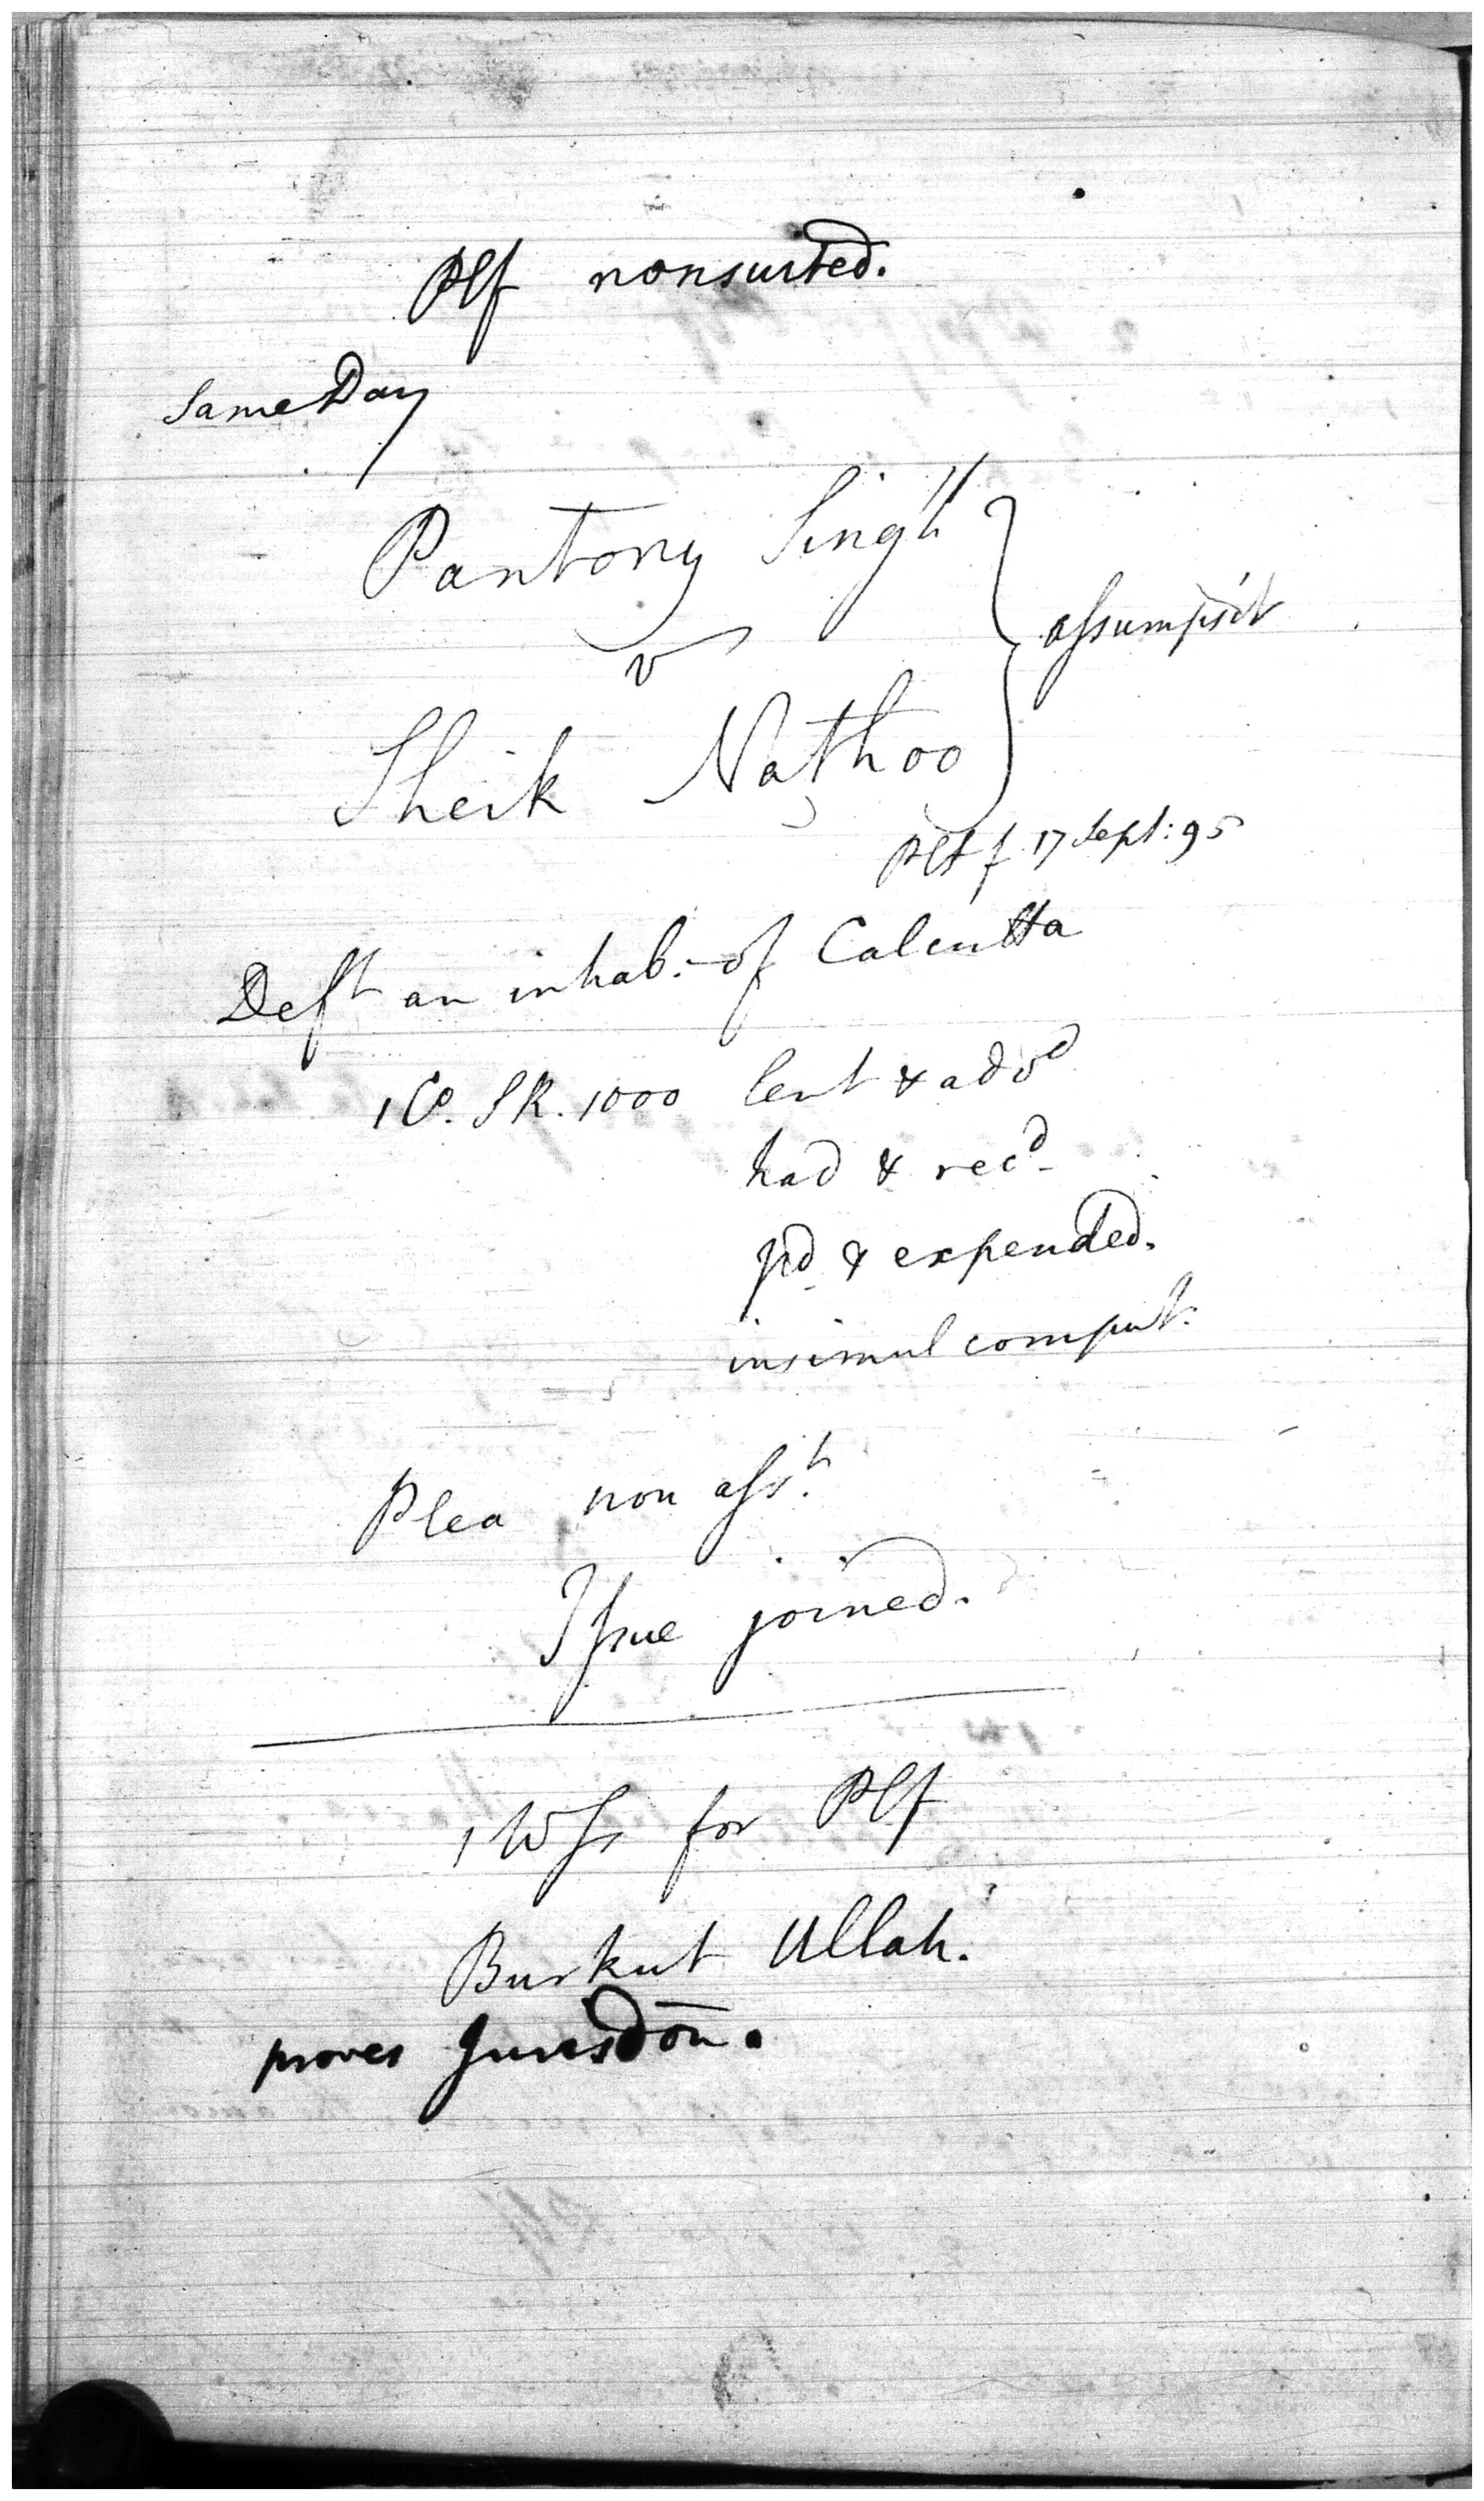 Plf nonsuited.
Same Day
Pantony Singh
v
assumpsit
Sheik Nathoo
Pltf 17 Sept: 95
Deft an inhab: of Calcutta
1 Co. SR. 1000 lent & advd
had & recd
pd & expended.
insimul comput:
Plea non asst.
Issue joined.
1 Wss for Plf
Burkut Ullah.
proves Jurisdon.